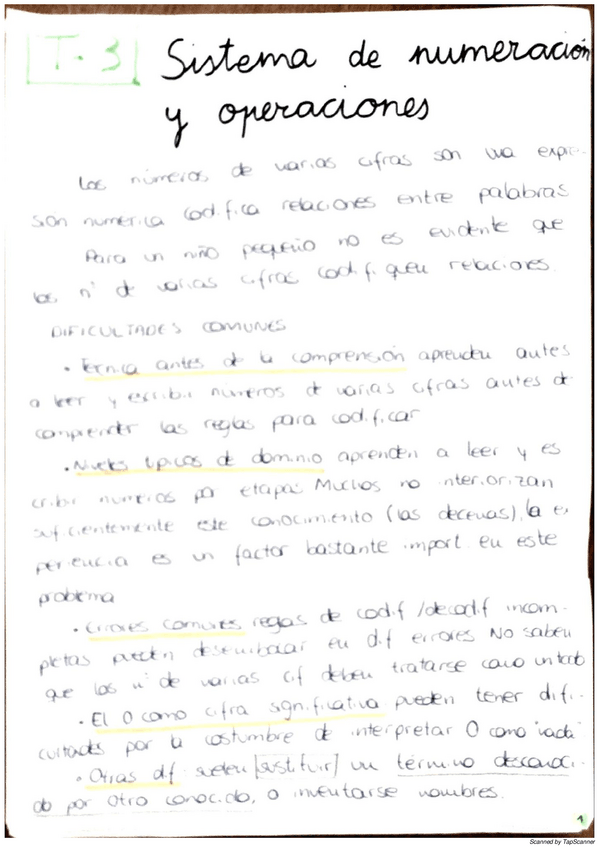 T-3 Sistema de numeración
y operaciones
Los números de varias cifras son una expre-
sión numérica codifica relaciones entre palabras
Para un niño pequeño no es evidente que
los nº de varias cifras codifiquen relaciones.
DIFICULTADES COMUNES
• Técnica antes de la comprensión aprenden antes
a leer y escribir números de varias cifras antes de
comprender las reglas para codificar
• Niveles típicos de dominio aprenden a leer y es
cribir números por etapas Muchos no interiorizan
suficientemente este conocimiento (las decenas), la ex
periencia es un factor bastante import. en este
problema
• Errores comunes reglas de codif/decodif incom-
pletas pueden desembocar en dif errores No saben
que los nº de varias cif deben tratarse como un todo
• El 0 como cifra significativa pueden tener difi-
cultades por la costumbre de interpretar 0 como "nada"
• Otras dif suelen [sustituir] un término desconoci-
do por otro conocido, o inventarse nombres.
1
Scanned by TapScanner